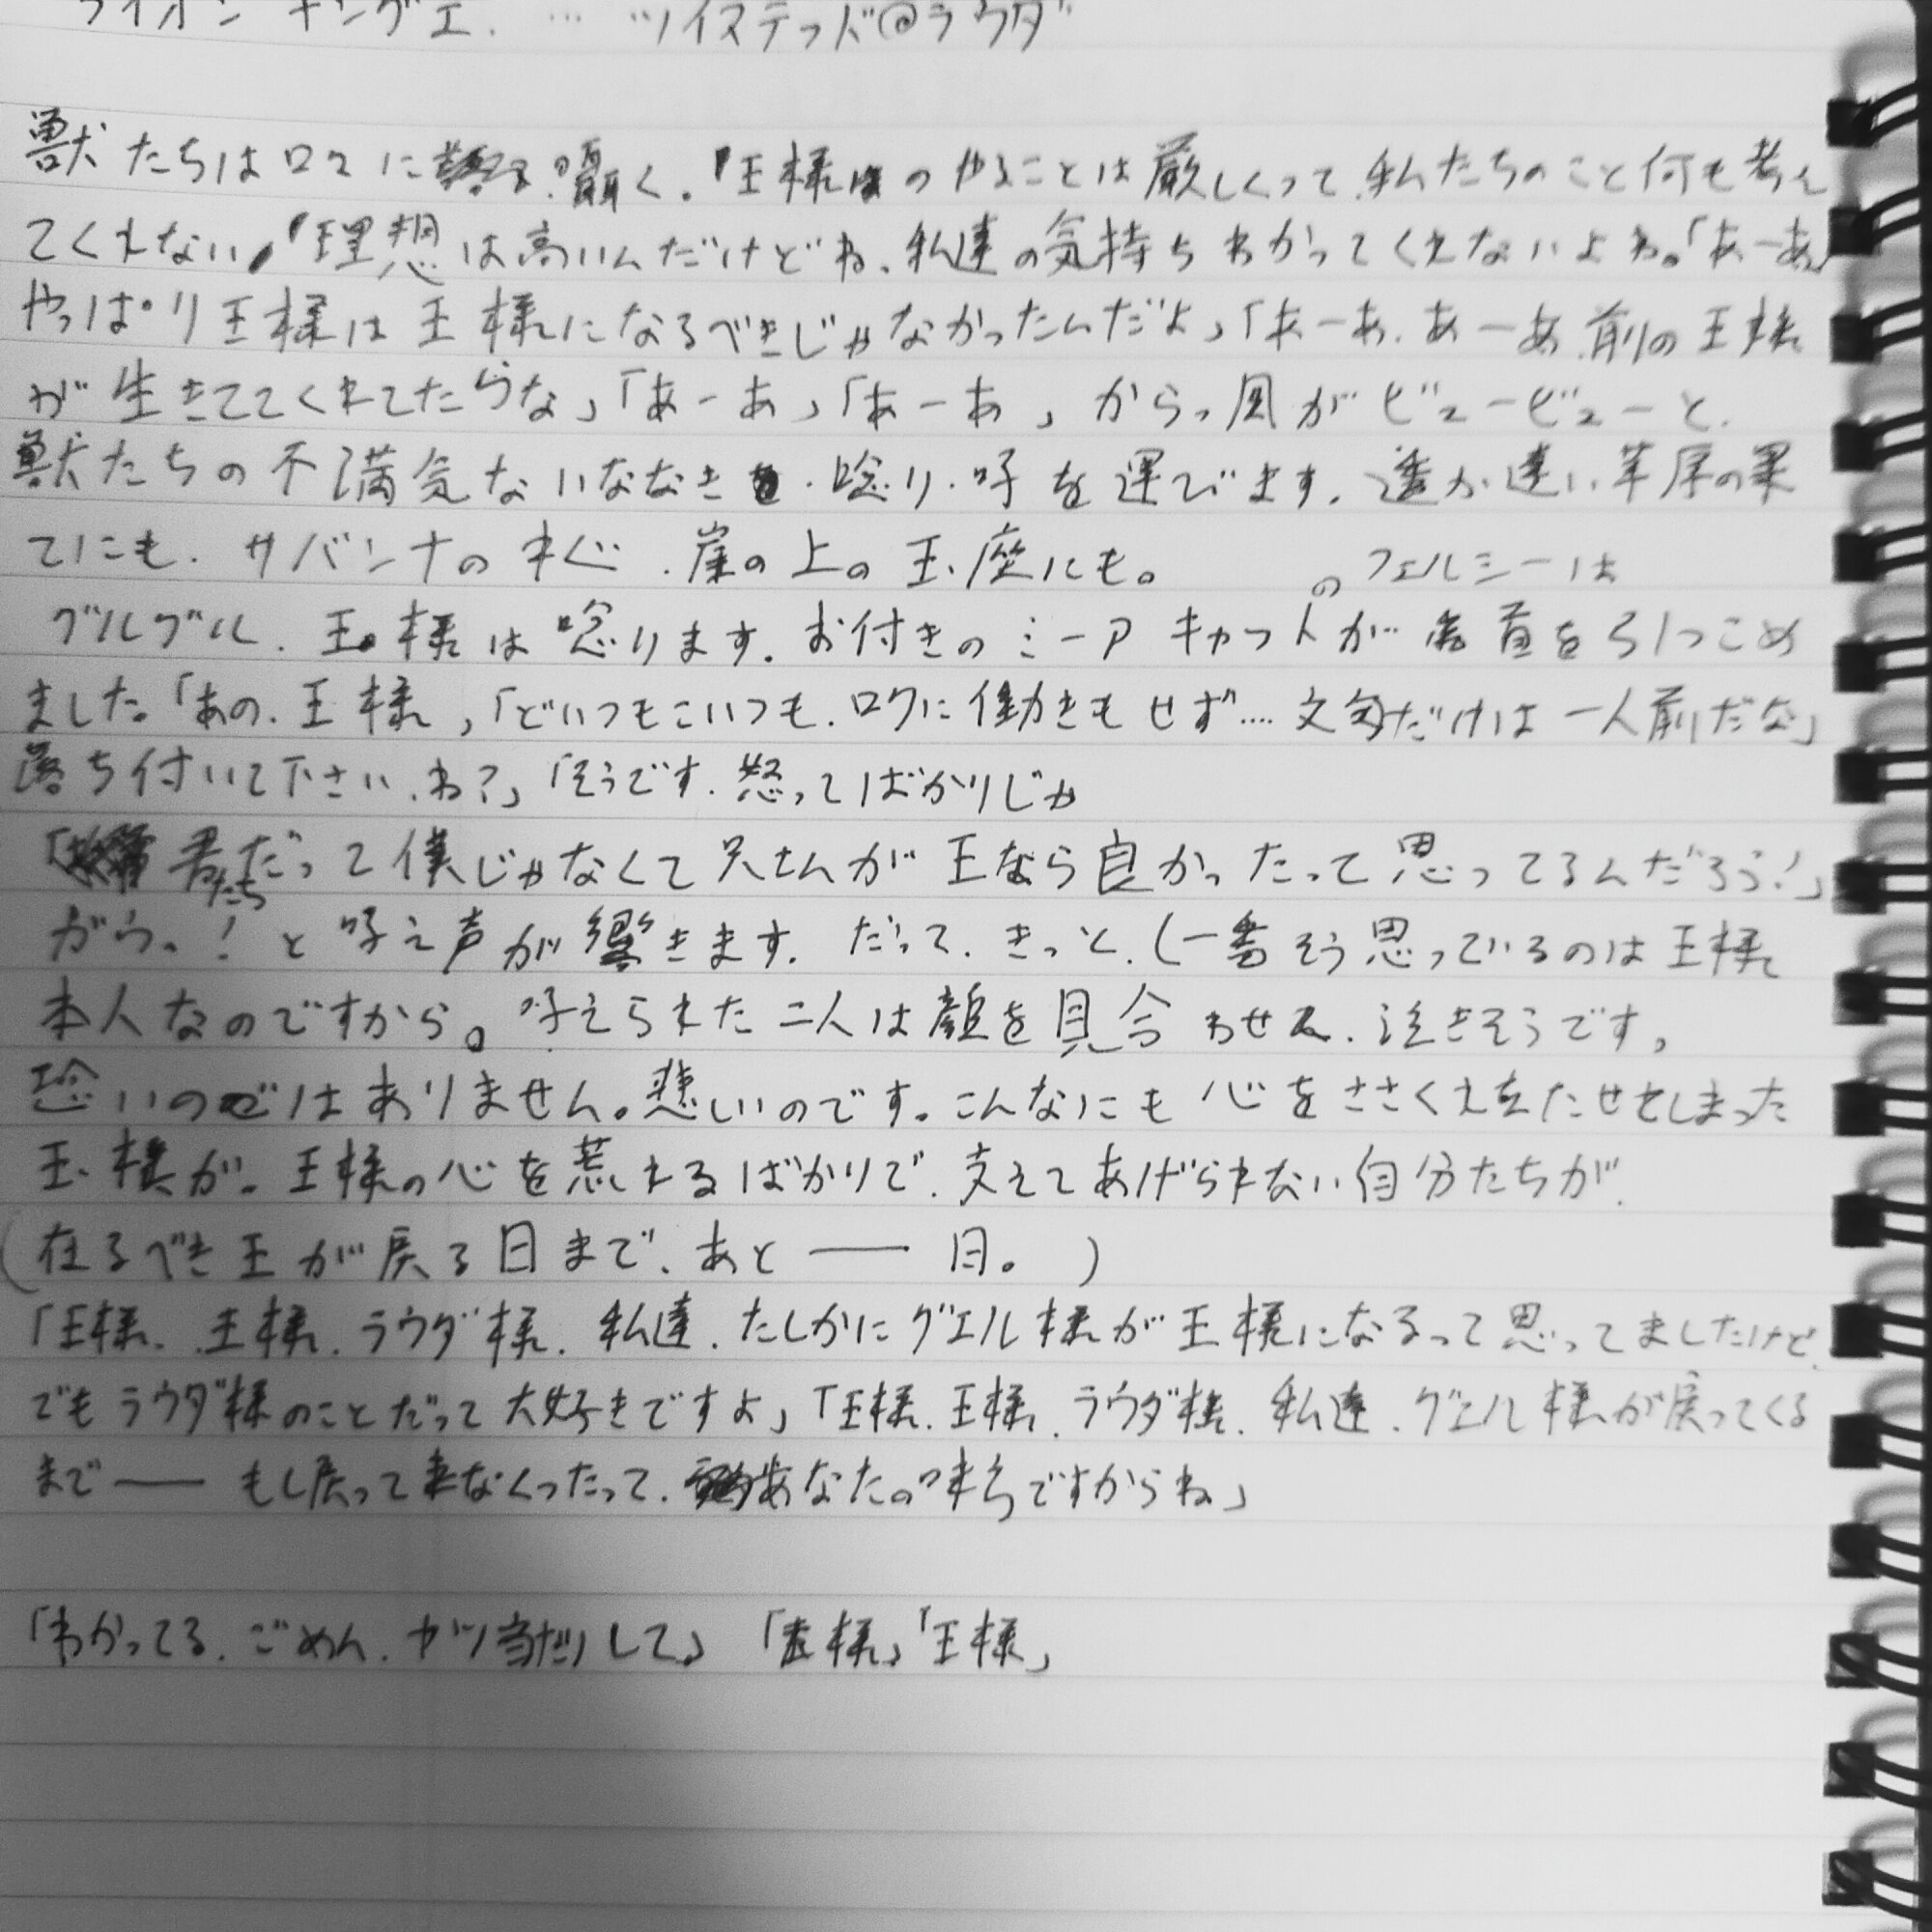 ライオンキングエ. … ツイステッド@ラウダ
獣たちは口々に囁く。「王様のやることは厳しくって、私たちのこと何も考え
てくれない」「理想は高いんだけどね、私達の気持ちわかってくれないよね。「あーあ」
やっぱり王様は王様になるべきじゃなかったんだよ」「あーあ、あーあ、前の王様
が生きててくれてたらな」「あーあ」「あーあ」からっ風がビュービューと、
獣たちの不満気ないななき・唸り・吠を運びます。遙か遠い草原の果
てにも、サバンナの、崖の上の玉座にも。
のフェルシーは
グルグル、王様は唸ります。お付きのミーアキャットが首を引っこめ
ました。「あの、王様」「どいつもこいつも、ロクに働きもせず…. 文句だけは一人前だな」
落ち付いて下さい、ね?」「そうです、怒ってばかりじゃ
「君たちだって僕じゃなくて兄さんが王なら良かったって思ってるんだろう!」
がうっ!と吠え声が響きます。だって、きっと、(一番そう思っているのは王様
本人なのですから。吠えられた二人は顔を見合わせて、泣きそうです。
恐いのではありません。悲しいのです。こんなにも心をささくえたたせてしまった
王様が。王様の心を荒れるばかりで、支えてあげられない自分たちが、
(在るべき王が戻る日まで、あと―― 日。)
「王様、王様、ラウダ様、私達、たしかにグエル様が王様になるって思ってましたけど、
でもラウダ様のことだって大好きですよ」「王様、王様、ラウダ様、私達、グエル様が戻ってくる
まで―― もし戻って来なくったって、あなたの味方ですからね」
「わかってる、ごめん、ヤツ当たりして」「王様」「王様」